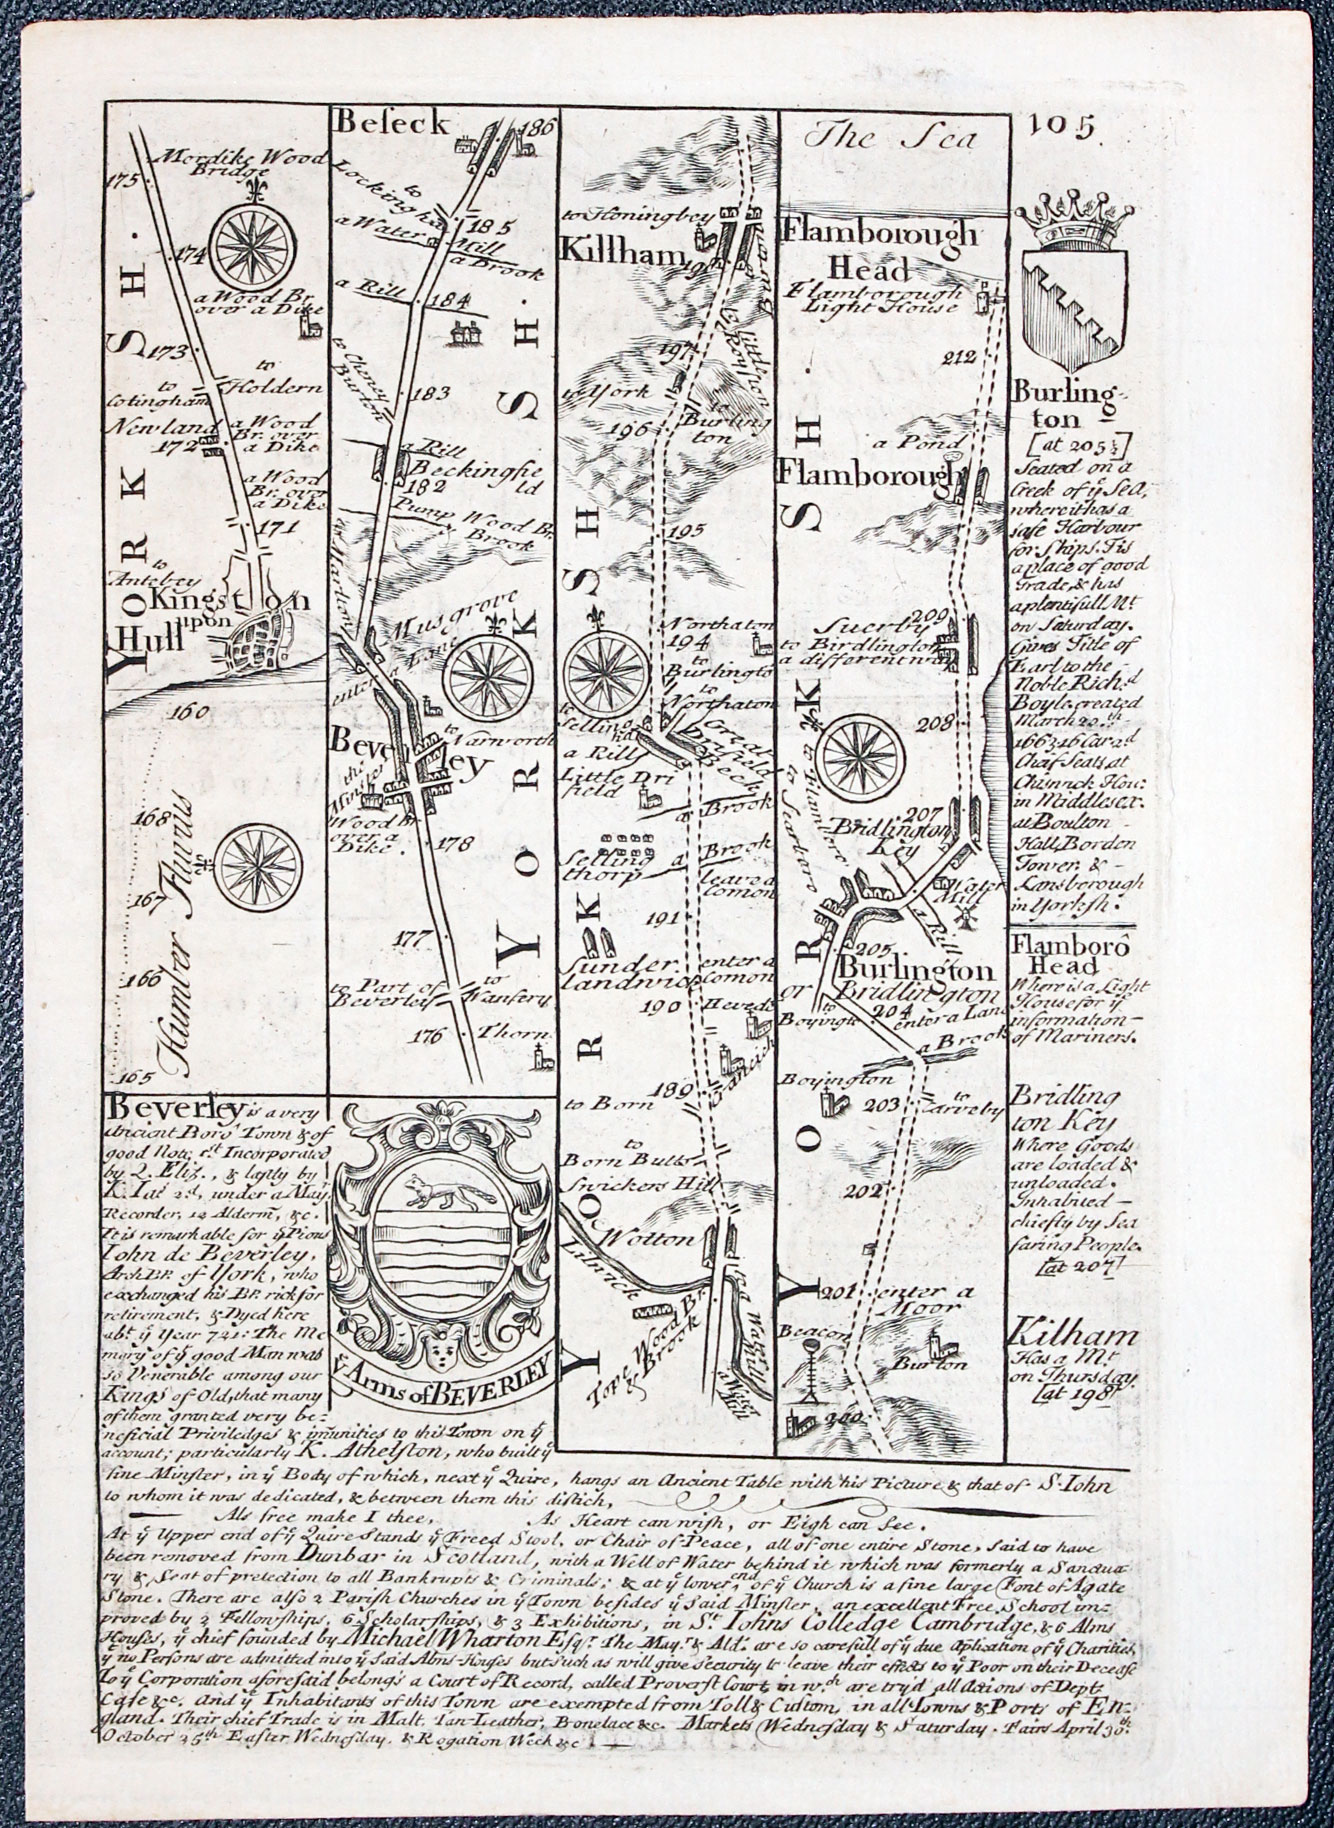 105.
Mordike Wood
Bridge
175
174
a Wood Br.
over a Dike
173
to
Holdern
to
Cotingham
Newland
172
a Wood
Br. over
a Dike
a Wood
Br. over
a Dike
171
to
Antebey
Kingston
upon
Hull
YORKSH.
160
168
167
166
165
Humber Fluvius
Beseck
186
to
Lockingha
185
a Water Mill
a Brook
a Rill
184
to Cheney
Burton
183
a Rill
Beckingfie
ld
182
Pump Wood Br.
Brook
Musgrove
Lane
enter a
Beverley
to
Varnworth
the
Minster
Wood Br
over a
Dike.
178
177
to Part of
Beverley
to
Wansery
176
Thorn
YORKSH.
to Honingbey
Killham
198
197
to York
to
Burling
ton
196
195
Northaton
194
to
Burlington
to
Northaton
to
Selling
ha
Great
Drifield
Beck
a Rill
Little Dri
field
a Brook
Selling
thorp
a Brook
leave a
Comon
191
Sunder
landwick
enter a
Comon
190
189
Crancich
to Born
to
Born Butts
Swickers Hill
Wotton
Tope Wood Br
& Brook
YORKSH.
The Sea
Flamborough
Head
Flamborough
Light House
212
a Pond
Flamborough
209
Suerby
to Birdlington
a different way
208
207
Bridlington
Key
Water
Mill
a Rill
to Scarboro
205
Burlington
or Bridlington
to
Boyington
204
enter a Lane
a Brook
Boyington
203
to
Carnaby
202
201
enter a
Moor
Beacon
Burton
200
YORKSH.
Burling-
ton
[at 205½]
Seated on a
Creek of yͤ Sea,
where it has a
safe Harbour
for Ships. Tis
a place of good
Trade, & has
a plentifull Mt
on Saturday.
Gives Title of
Earl to the
Noble Richd
Boyle created
March 20th
Chief Seats, at
Chiswick Hou:
in Middlesex.
at Boulton
Hall, Borden
Tower, & -
Lansborough
in Yorksh:
Flamborô
Head
Where is a Light
House for yͤ
information
of Mariners.
Bridling
ton Key
Where Goods
are loaded &
unloaded.
Inhabited
chiefly by Sea
faring People.
[at 207]
Kilham
Has a Mt
on Thursday
[at 198]
Beverley is a very
Ancient Boro' Town & of
good Note, 1st Incorporated
by Q. Eliz., & lastly by
K. Ias 2d, under a May.
Recorder, 12 Alderm, &c.
It is remarkable for yͤ Pious
Iohn de Beverley,
ArchBP. of York, who
exchanged his BP.rick for
retirement, & Dyed here
abt yͤ Year 721: The Me
mory of yͤ good Man was
so Venerable among our
Kings of Old, that many
of them granted very be=
neficial Priviledges & imunities to this Town on yͤ
account; particularly K. Athelston, who built yͤ
fine Minster, in yͤ Body of which, next yͤ Quire, hangs an Ancient Table with his Picture & that of St Iohn
to whom it was dedicated, & between them this distich,
Als free make I thee, As Heart can wish, or Eigh can See.
At yͤ Upper end of yͤ Quire Stands yͤ Freed Stool, or Chair of Peace, all of one entire Stone, said to have
been removed from Dunbar in Scotland, with a Well of Water behind it which was formerly a Sanctua
ry & Seat of protection to all Bankrupts & Criminals; & at yͤ lower end of yͤ Church is a fine large Font of Agate
Stone. There are also 2 Parish Churches in yͤ Town besides yͤ Said Minster, an excellent Free School im=
proved by 2 Fellowships, 6 Scholarships, & 3 Exhibitions, in St Iohns Colledge Cambridge, & 6 Alms
Houses, yͤ chief founded by Michael Wharton Esqr. The Mayr & Ald. are so carefull of yͤ due Aplication of yͤ Charities,
yͭ no Persons are admitted into yͤ Said Alms-Houses but such as will give Security to leave their effects to yͤ Poor on their Decease
To yͤ Corporation aforesaid belongs a Court of Record, called Proverst Court in wch are try'd all Actions of Dept
Case &c. And yͤ Inhabitants of this Town are exempted from Toll & Custom, in all Towns & Ports of En=
gland. Their chief Trade is in Malt, Tan-Leather, Bonelace &c. Markets Wednesday & Saturday. Fairs April 30th
October 25th Easter Wednesday. & Rogation Week &c
yͤ Arms of BEVERLEY